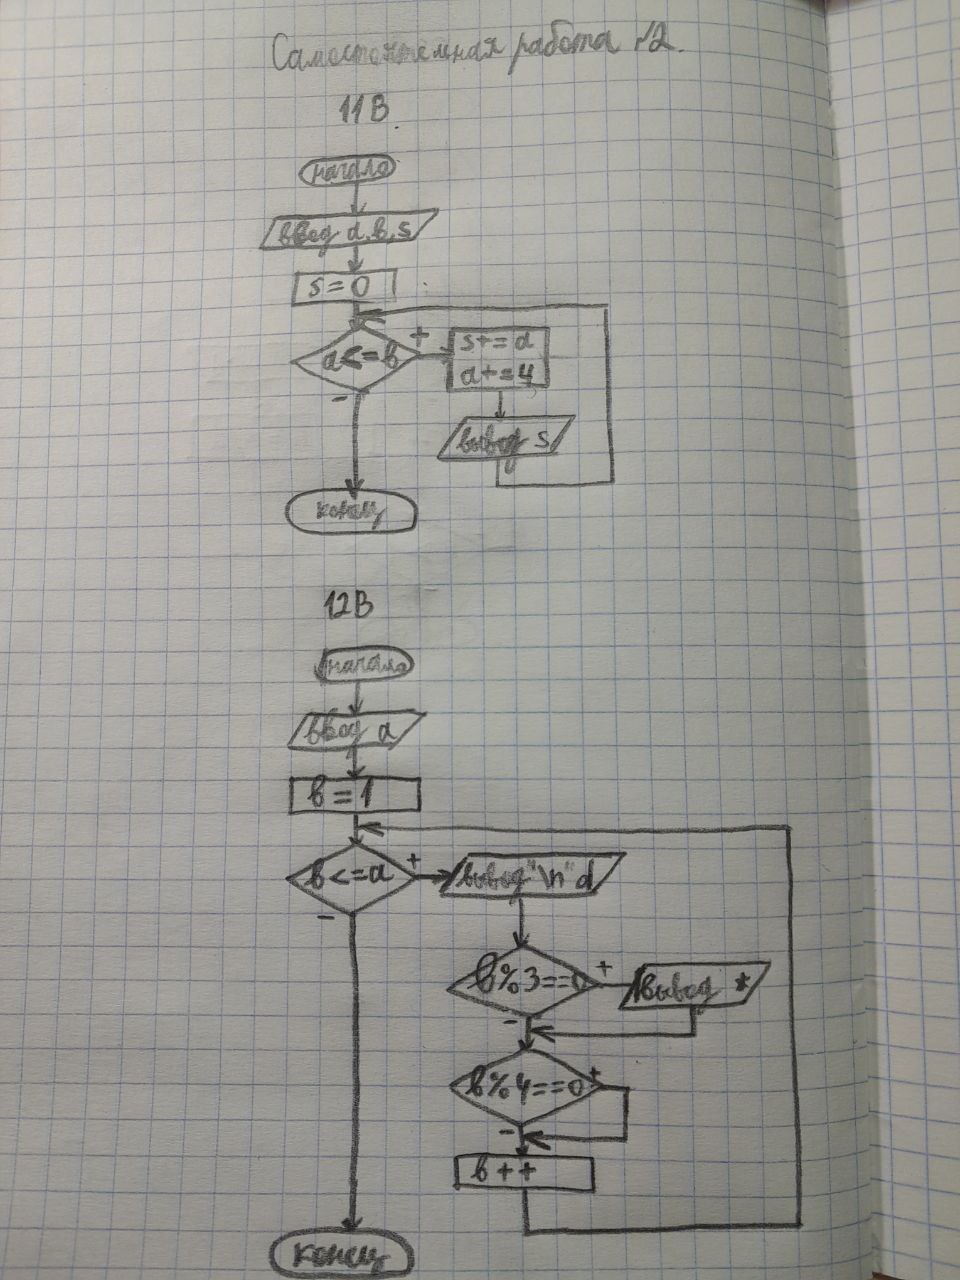 Самостоятельная работа №2.
11В.
начало
ввод a,b,s
s=0
a<=b
+
s+=a
a+=4
-
вывод s
конец
12В
начало
ввод a
b=1
b<=a
+
вывод "\n" a
-
b%3==0
+
вывод *
-
b%4==0
+
-
b++
конец